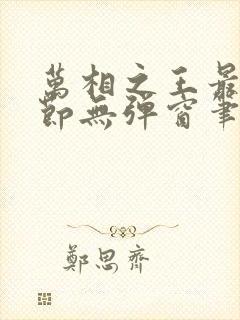 萬相之王最
節無彈窗筆
鄭思齊